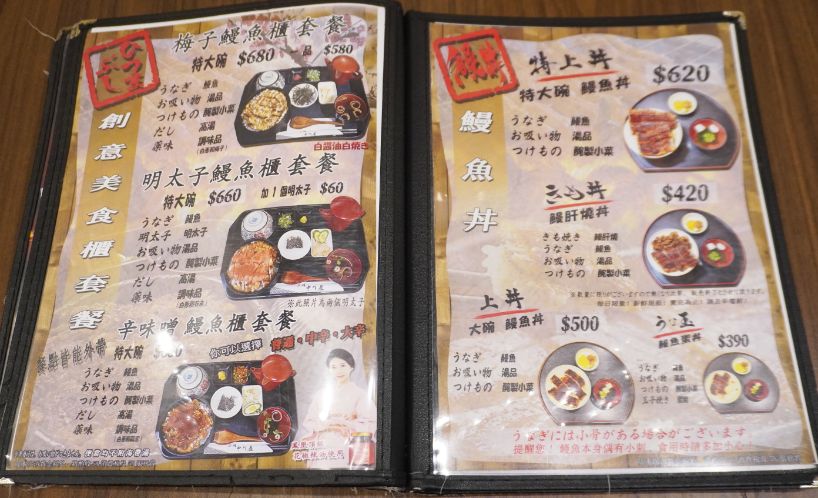 ひつまぶし
創意美食櫃套餐
梅子鰻魚櫃套餐
特大碗 $680 品 $580
うなぎ 鰻魚
お吸い物 湯品
つけもの 醃製小菜
だし 高湯
薬味 調味品
白醤油白焼き
明太子鰻魚櫃套餐
特大碗 $660 加1個明太子 $60
うなぎ 鰻魚
明太子 明太子
お吸い物 湯品
つけもの 醃製小菜
だし 高湯
薬味 調味品
※此照片為兩個明太子
辛味噌 鰻魚櫃套餐
特大碗
你可以選擇 普通・中辛・大辛
餐點皆能外帶
うなぎ 鰻魚
お吸い物 湯品
つけもの 醃製小菜
だし 高湯
薬味 調味品
花椒辣油使用
鰻魚丼
特上丼
特大碗 鰻魚丼 $620
うなぎ 鰻魚
お吸い物 湯品
つけもの 醃製小菜
きも丼 $420
鰻肝燒丼
きも焼き 鰻肝燒
うなぎ 鰻魚
お吸い物 湯品
つけもの 醃製小菜
上丼
大碗 鰻魚丼 $500
うなぎ 鰻魚
お吸い物 湯品
つけもの 醃製小菜
うな玉
$390
うなぎ
お吸い物 湯品
つけもの 醃製小菜
玉子焼き
うなぎには小骨がある場合がございます
提醒您! 鰻魚本身偶有小刺，食用時請多加小心。